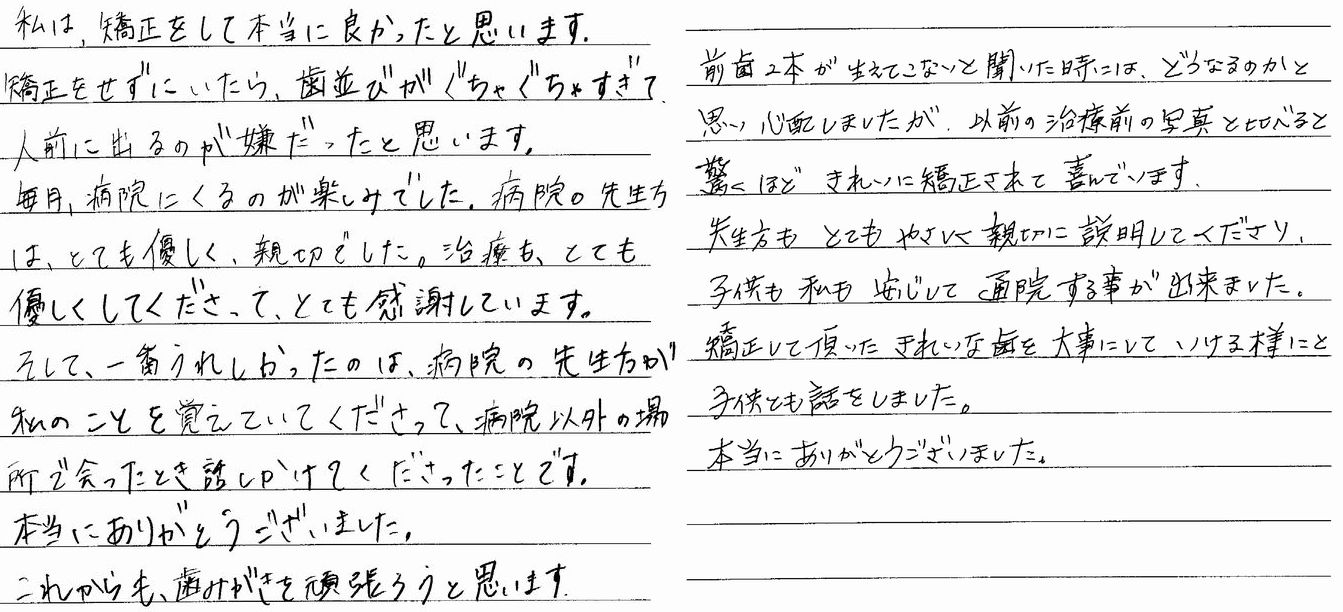 私は、矯正をして本当に良かったと思います。
矯正をせずにいたら、歯並びがぐちゃぐちゃすぎて、
人前に出るのが嫌だったと思います。
毎月、病院にくるのが楽しみでした。病院の先生方
は、とても優しく、親切でした。治療も、とても
優しくしてくださって、とても感謝しています。
そして、一番うれしかったのは、病院の先生方が
私のことを覚えていてくださって、病院以外の場
所で会ったとき話しかけてくださったことです。
本当にありがとうございました。
これからも、歯みがきを頑張ろうと思います。
前歯2本が生えてこないと聞いた時には、どうなるのかと
思い心配しましたが、以前の治療前の写真と比べると
驚くほどきれいに矯正されて喜んでいます。
先生方もとてもやさしく親切に説明してくださり、
子供も私も安心して通院する事が出来ました。
矯正して頂いたきれいな歯を大事にしていける様にと
子供とも話をしました。
本当にありがとうございました。